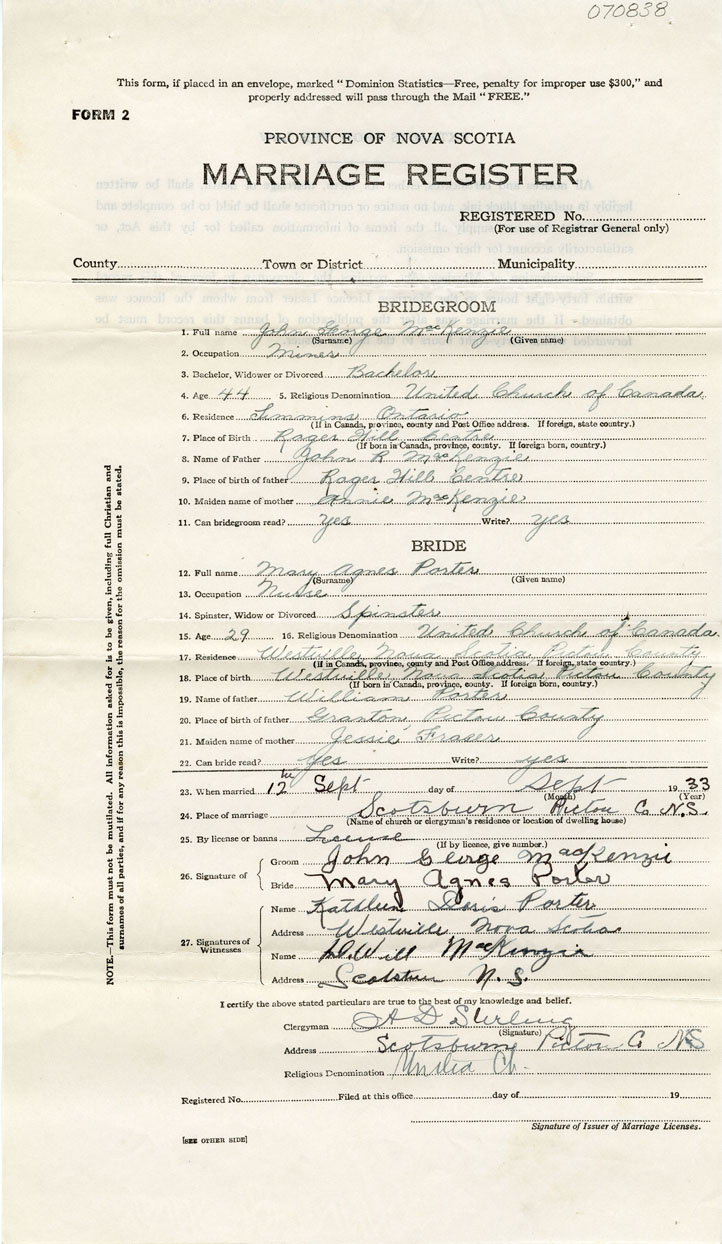 070838
This form, if placed in an envelope, marked "Dominion Statistics—Free, penalty for improper use $300," and
properly addressed will pass through the Mail "FREE."
FORM 2
PROVINCE OF NOVA SCOTIA
MARRIAGE REGISTER
REGISTERED No.
(For use of Registrar General only)
County Town or District Municipality
BRIDEGROOM
1. Full name John George MacKenzie
(Surname) (Given name)
2. Occupation Miner
3. Bachelor, Widower or Divorced Bachelor
4. Age 44 5. Religious Denomination United Church of Canada
6. Residence Timmins Ontario
(If in Canada, province, county and Post Office address. If foreign, state country.)
7. Place of Birth Roger Hill Centre
(If born in Canada, province, county. If foreign born, country.)
8. Name of Father John R MacKenzie
9. Place of birth of father Roger Hill Centre
10. Maiden name of mother Annie MacKenzie
11. Can bridegroom read? yes Write? yes
BRIDE
12. Full name Mary Agnes Porter
(Surname) (Given name)
13. Occupation Nurse
14. Spinster, Widow or Divorced Spinster
15. Age 29 16. Religious Denomination United Church of Canada
17. Residence Westville Nova Scotia Pictou County
(If in Canada, province, county and Post Office address. If foreign, state country.)
18. Place of birth Westville Nova Scotia Pictou County
(If born in Canada, province, county. If foreign born, country.)
19. Name of father William Porter
20. Place of birth of father Granton Pictou County
21. Maiden name of mother Jessie Fraser
22. Can bride read? yes Write? yes
23. When married 12th Sept day of Sept 1933
(Month) (Year)
24. Place of marriage Scotsburn Pictou Co N.S.
(Name of church or clergyman's residence or location of dwelling house)
25. By license or banns License
(If by licence, give number.)
26. Signature of Groom John George MacKenzie
Bride Mary Agnes Porter
27. Signatures of Witnesses
Name Kathleen Doris Porter
Address Westville Nova Scotia
Name D. Will MacKenzie
Address Scotsburn N.S.
I certify the above stated particulars are true to the best of my knowledge and belief.
Clergyman A D Sterling
(Signature)
Address Scotsburn Pictou Co NS
Religious Denomination United Ch.
Registered No. Filed at this office day of 19
Signature of Issuer of Marriage Licenses.
[SEE OTHER SIDE]
NOTE.—This form must not be mutilated. All information asked for is to be given, including full Christian and
surnames of all parties, and if for any reason this is impossible, the reason for the omission must be stated.